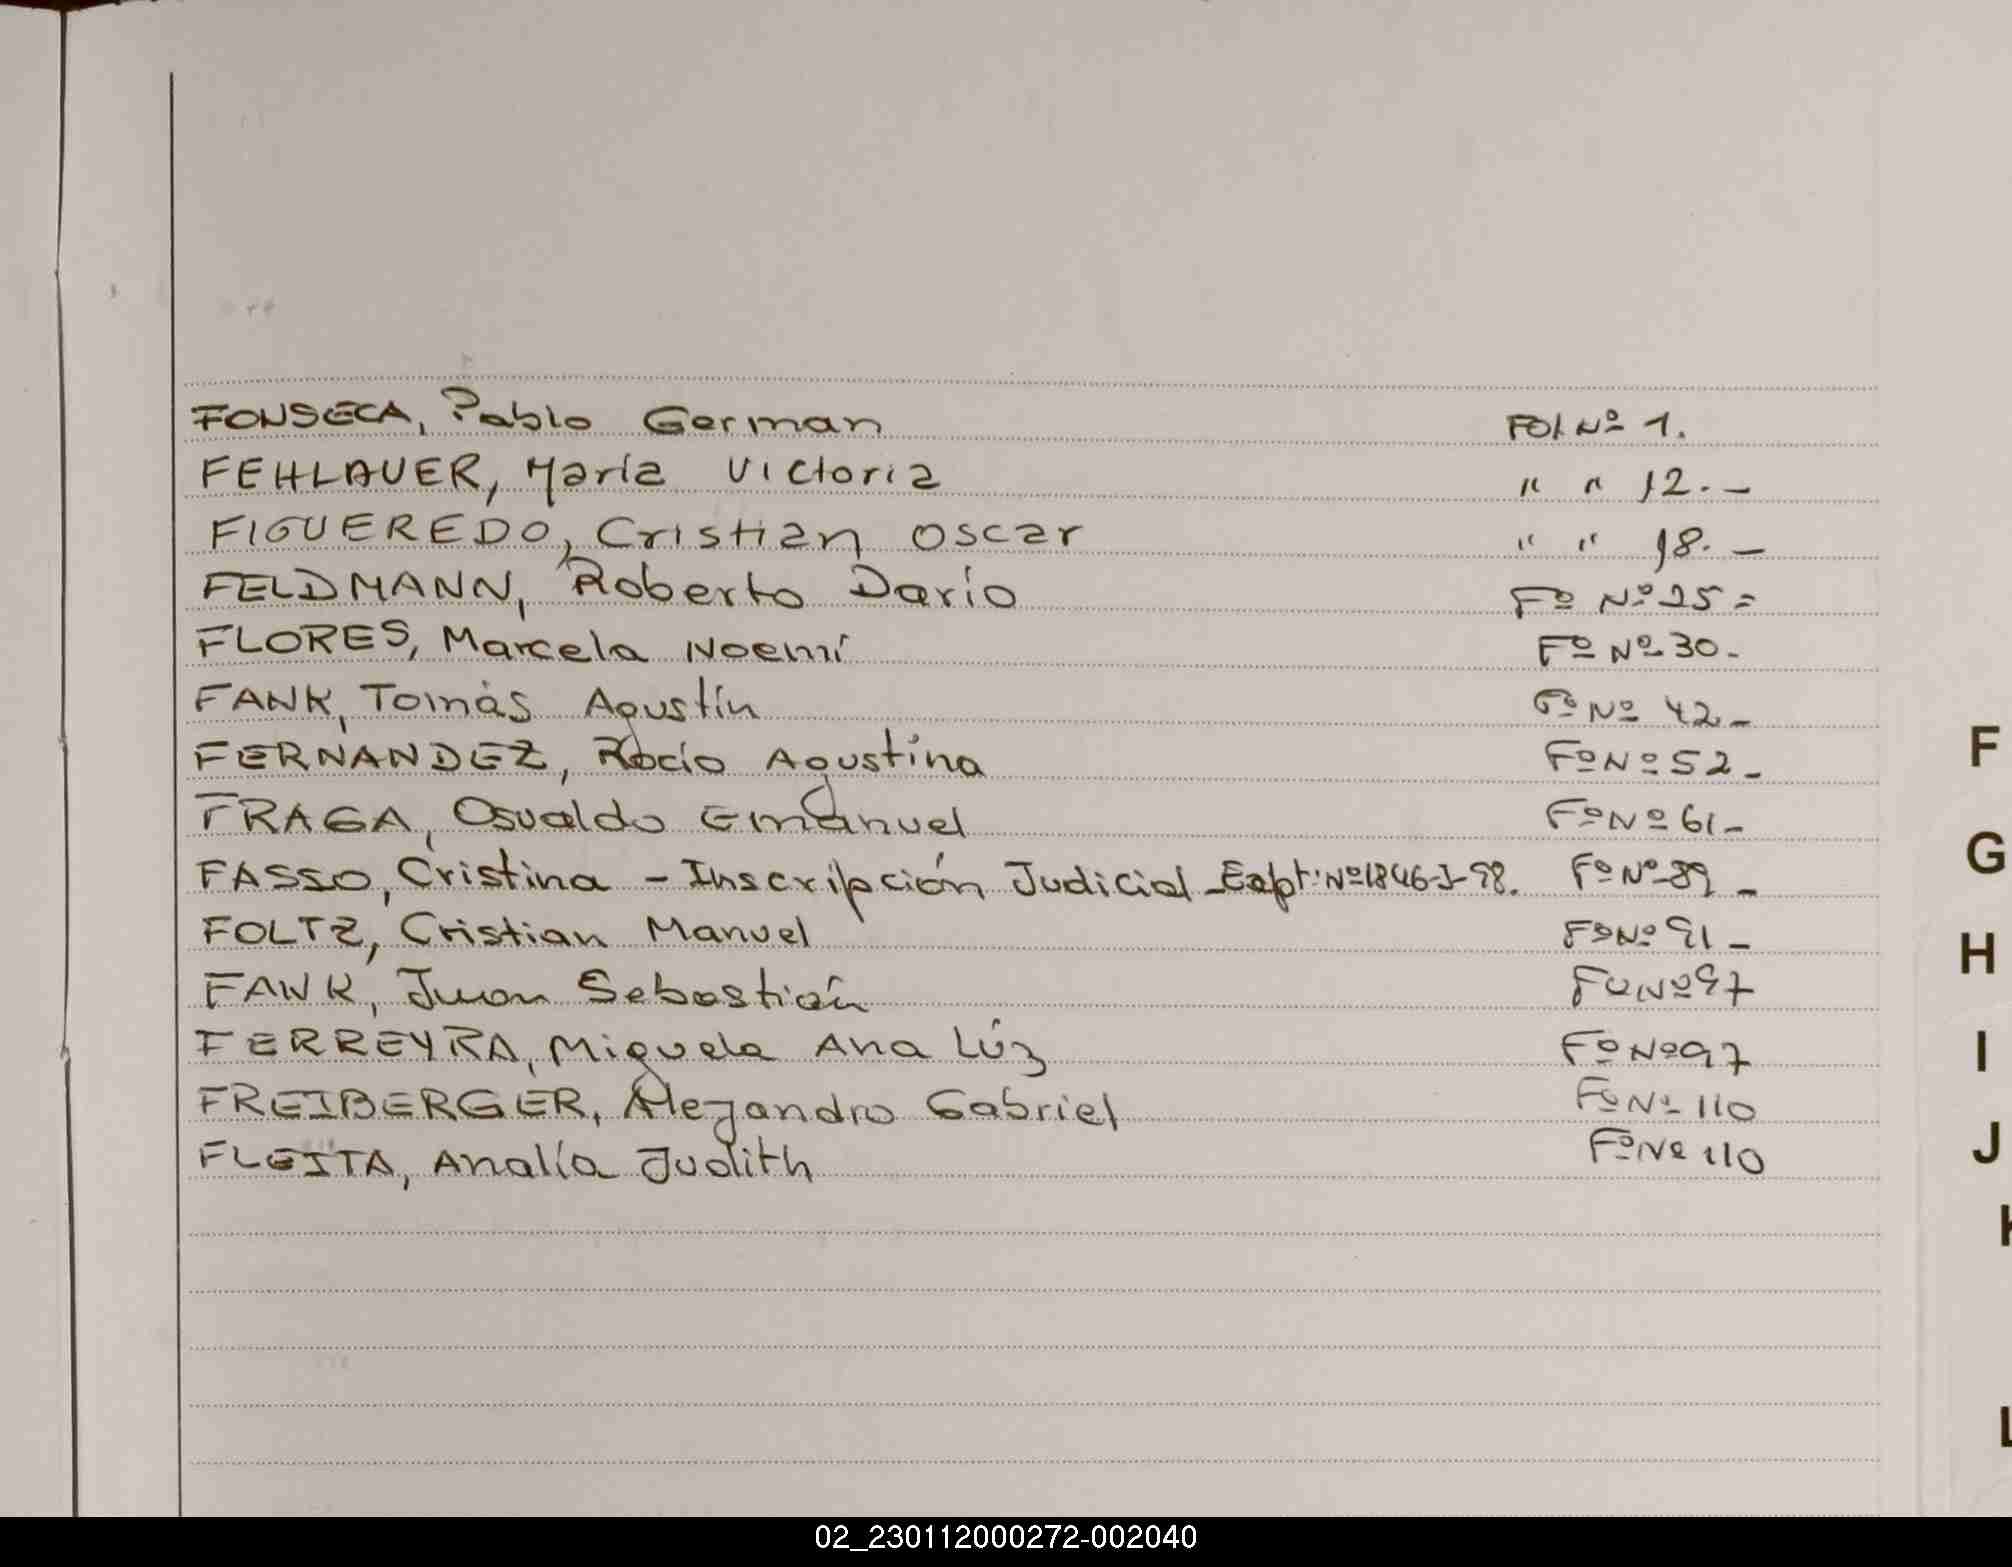 FONSECA, Pablo German Fol Nº 1.
FEHLAUER, María Victoria " " 12.-
FIGUEREDO, Cristian Oscar " " 18.-
FELDMANN, Roberto Darío Fº Nº 25=
FLORES, Marcela Noemí Fº Nº 30-
FANK, Tomás Agustín Fº Nº 42-
FERNANDEZ, Rocío Agustina Fº Nº 52-
FRAGA, Osvaldo Emanuel Fº Nº 61-
FASSO, Cristina - Inscripción Judicial - Expt: Nº 1846-J-98. Fº Nº 89-
FOLTZ, Cristian Manuel Fº Nº 91-
FANK, Juan Sebastián Fº Nº 97
FERREYRA, Miguela Ana Lúz Fº Nº 97
FREIBERGER, Alejandro Gabriel Fº Nº 110
FLEITA, Analía Judith Fº Nº 110
F
G
H
I
J
K
L
02_230112000272-002040